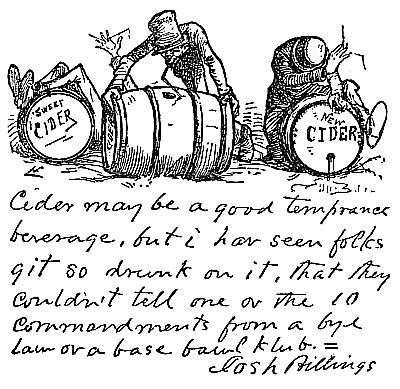 SWEET
CIDER
NEW
CIDER
Cider may be a good temprance
beverage, but i hav seen folks
git so drunk on it, that they
couldn't tell one ov the 10
commandments from a bye
law ov a base bawl klub. =
Josh Billings